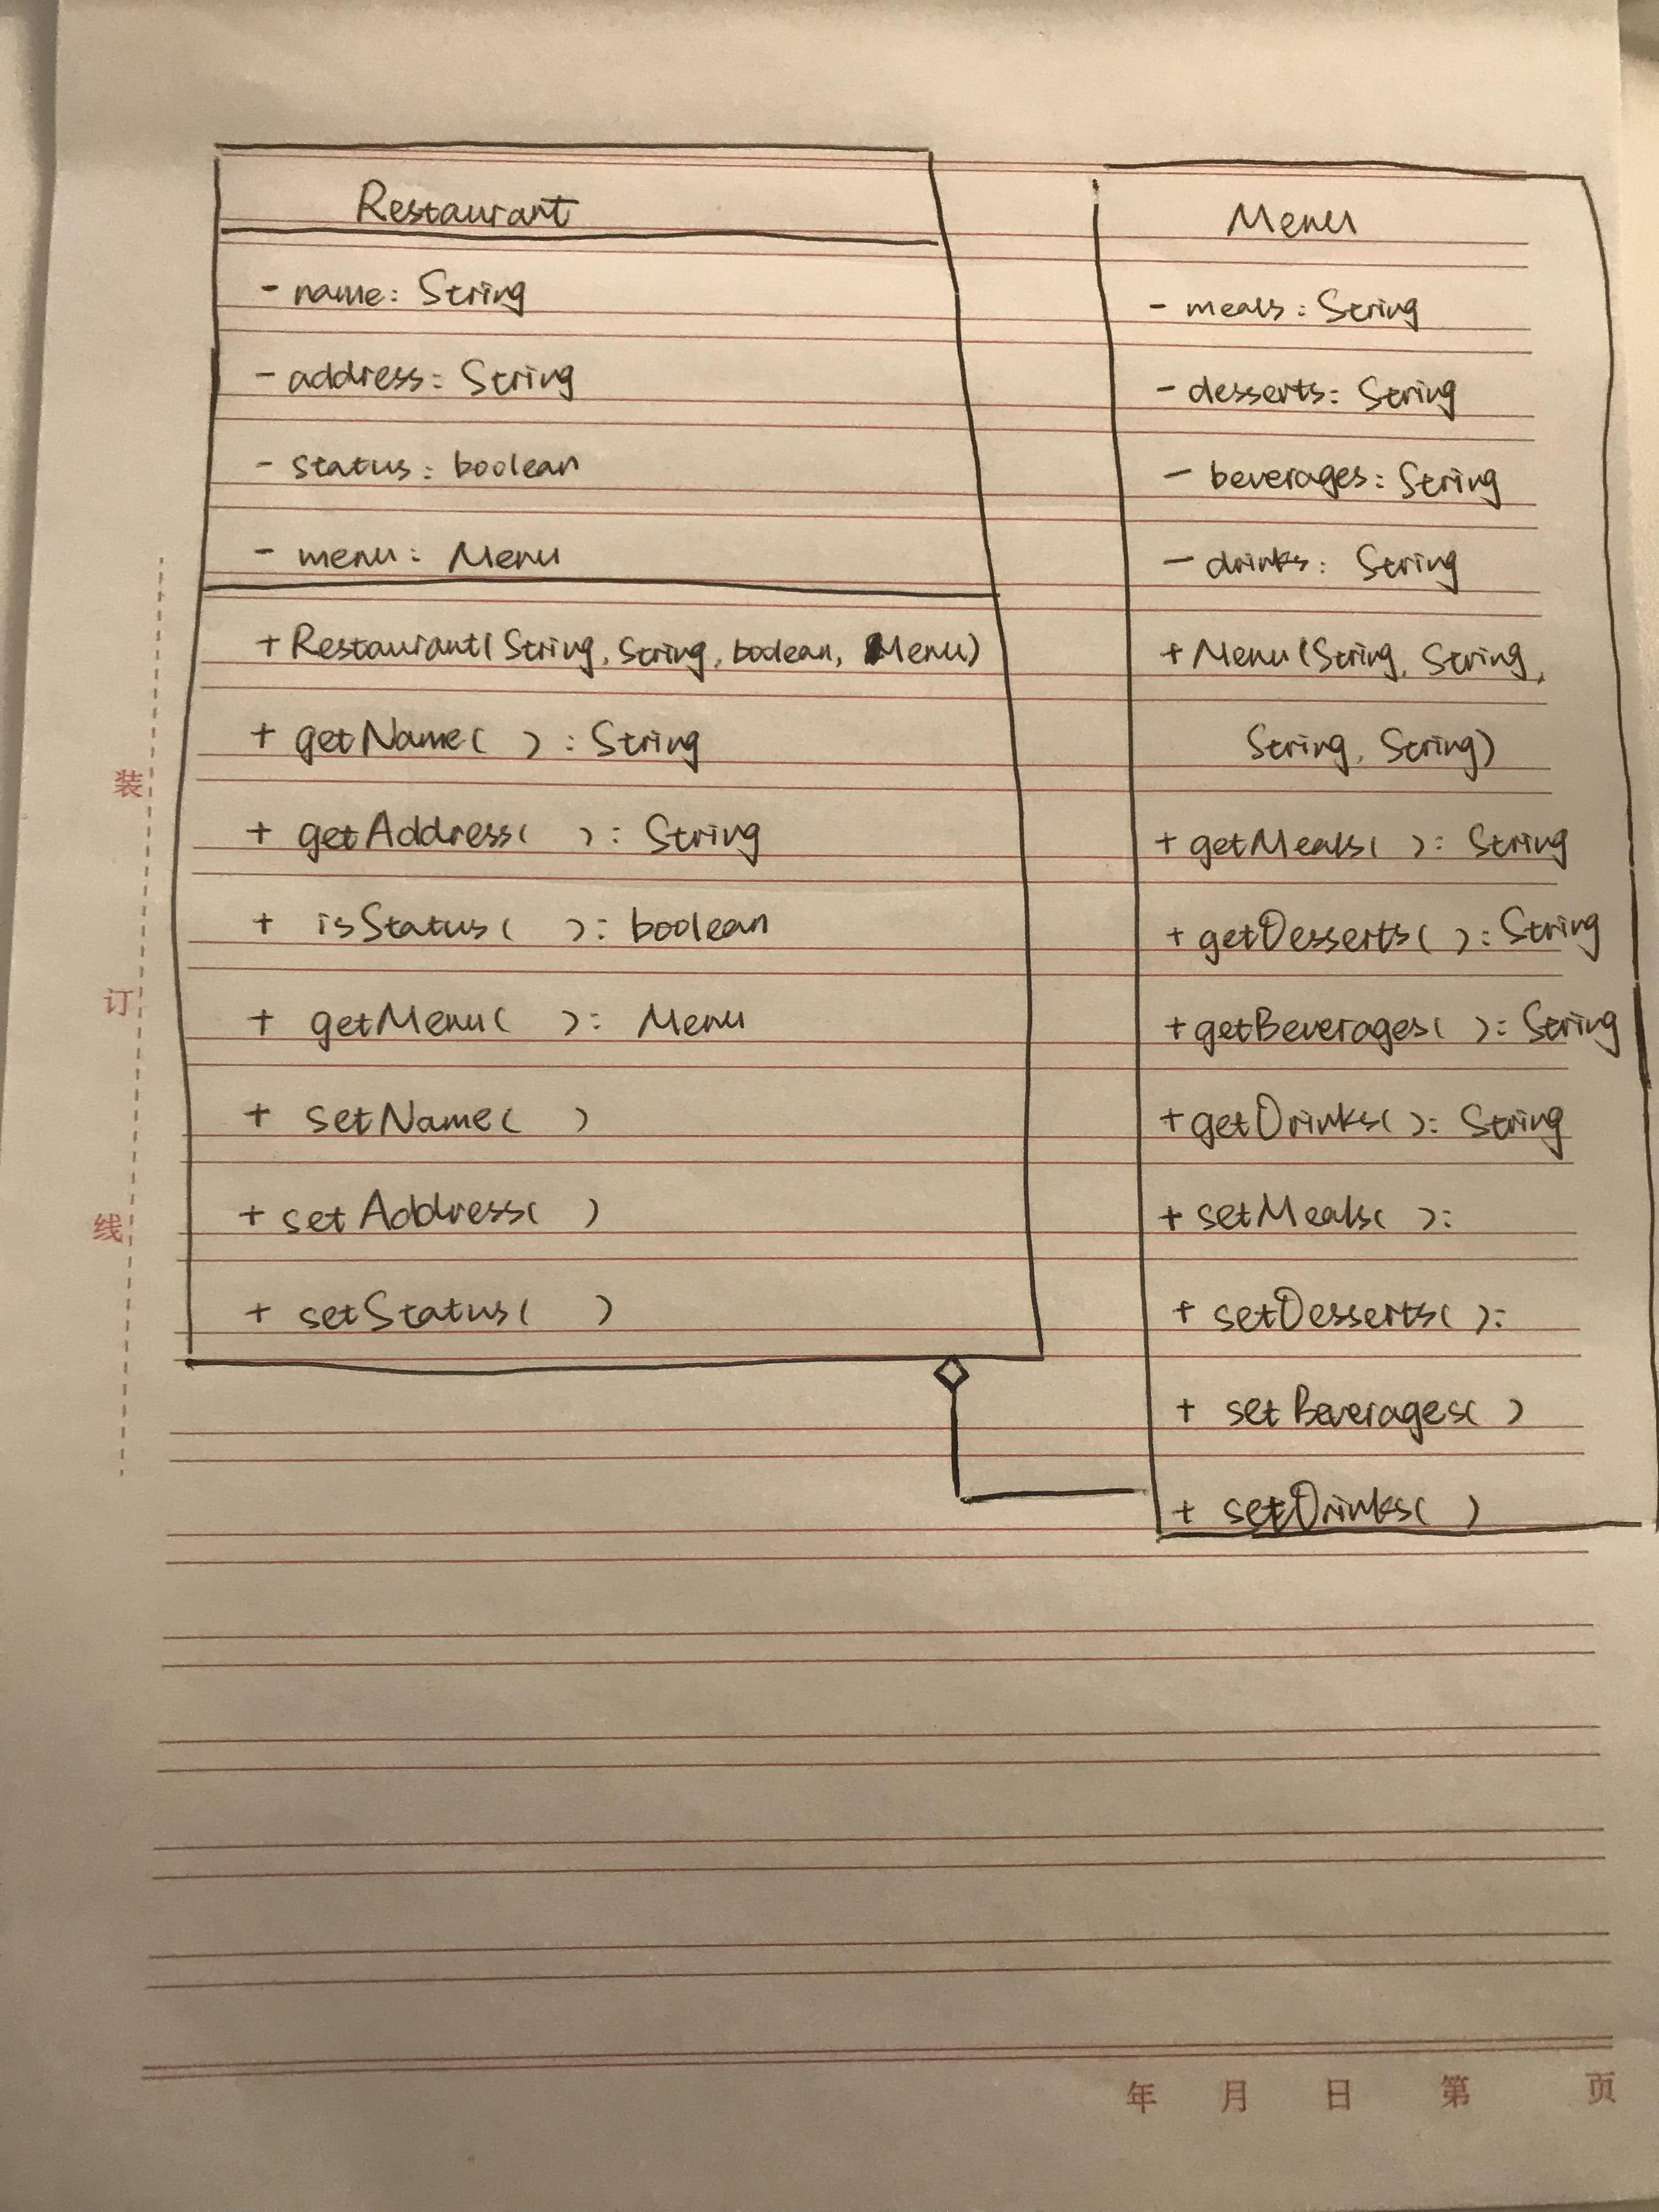 Restaurant
- name: String
- address: String
- status: boolean
- menu: Menu
+ Restaurant(String, String, boolean, Menu)
+ getName( ) : String
+ getAddress( ): String
+ isStatus( ): boolean
+ getMenu( ): Menu
+ setName( )
+ setAddress( )
+ setStatus( )
Menu
- meals: String
- desserts: String
- beverages: String
- drinks: String
+ Menu(String, String,
String, String)
+ getMeals( ): String
+ getDesserts( ): String
+ getBeverages( ): String
+ getDrinks( ): String
+ setMeals( ):
+ setDesserts( ):
+ setBeverages( )
+ setDrinks( )
装
订
线
年 月 日 第 页